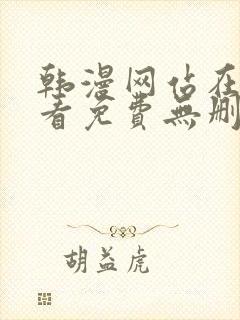 韩漫网站在
看免費無刪
胡益虎